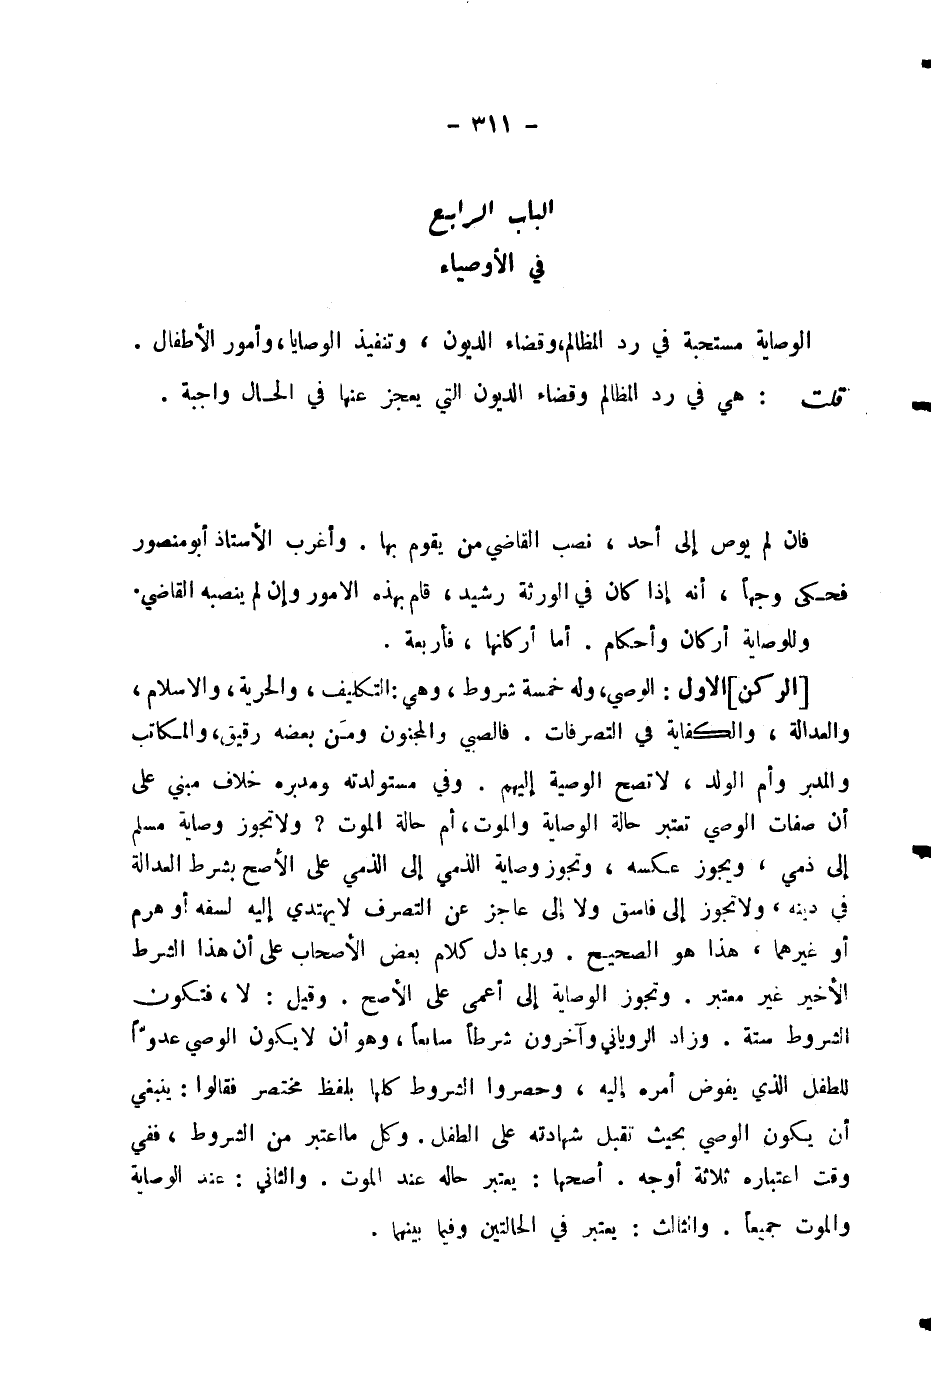 - ٣١١ -
الباب الرابع
في الأوصياء
الوصاية مستحبة في رد المظالم،وقضاء الديون ، وتنفيذ الوصايا،وأمور الأطفال .
قلت : هي في رد المظالم وقضاء الديون التي يعجز عنها في الحال واجبة .
فان لم يوص إلى أحد ، نصب القاضي من يقوم بها . وأغرب الأستاذ أبو منصور
فحكى وجهاً ، أنه إذا كان في الورثة رشيد ، قام بهذه الامور وإن لم ينصبه القاضي.
وللوصاية أركان وأحكام . أما أركانها ، فأربعة .
[الركن] الاول : الوصي، وله خمسة شروط ، وهي : التكليف ، والحرية ، والاسلام ،
والعدالة ، والكفاية في التصرفات . فالصبي والمجنون ومَن بعضه رقيق، والمكاتب
والمدبر وأم الولد ، لاتصح الوصية إليهم . وفي مستولدته ومدبره خلاف مبني على
أن صفات الوصي تعتبر حالة الوصاية والموت، أم حالة الموت ? ولاتجوز وصاية مسلم
إلى ذمي ، ويجوز عكسه ، وتجوز وصاية الذمي إلى الذمي على الأصح بشرط العدالة
في دينه ، ولاتجوز إلى فاسق ولا إلى عاجز عن التصرف لايهتدي إليه لسفه أو هرم
أو غيرهما ، هذا هو الصحيح . وربما دل كلام بعض الأصحاب على أن هذا الشرط
الأخير غير معتبر . وتجوز الوصاية إلى أعمى على الأصح . وقيل : لا ، فتكون
الشروط ستة . وزاد الروياني وآخرون شرطاً سابعاً ، وهو أن لايكون الوصي عدوّاً
للطفل الذي يفوض أمره إليه ، وحصروا الشروط كلها بلفظ مختصر فقالوا : ينبغي
أن يكون الوصي بحيث تقبل شهادته على الطفل . وكل مااعتبر من الشروط ، ففي
وقت اعتباره ثلاثة أوجه . أصحها : يعتبر حاله عند الموت . والثاني : عند الوصاية
والموت جميعاً . والثالث : يعتبر في الحالتين وفيما بينهما .